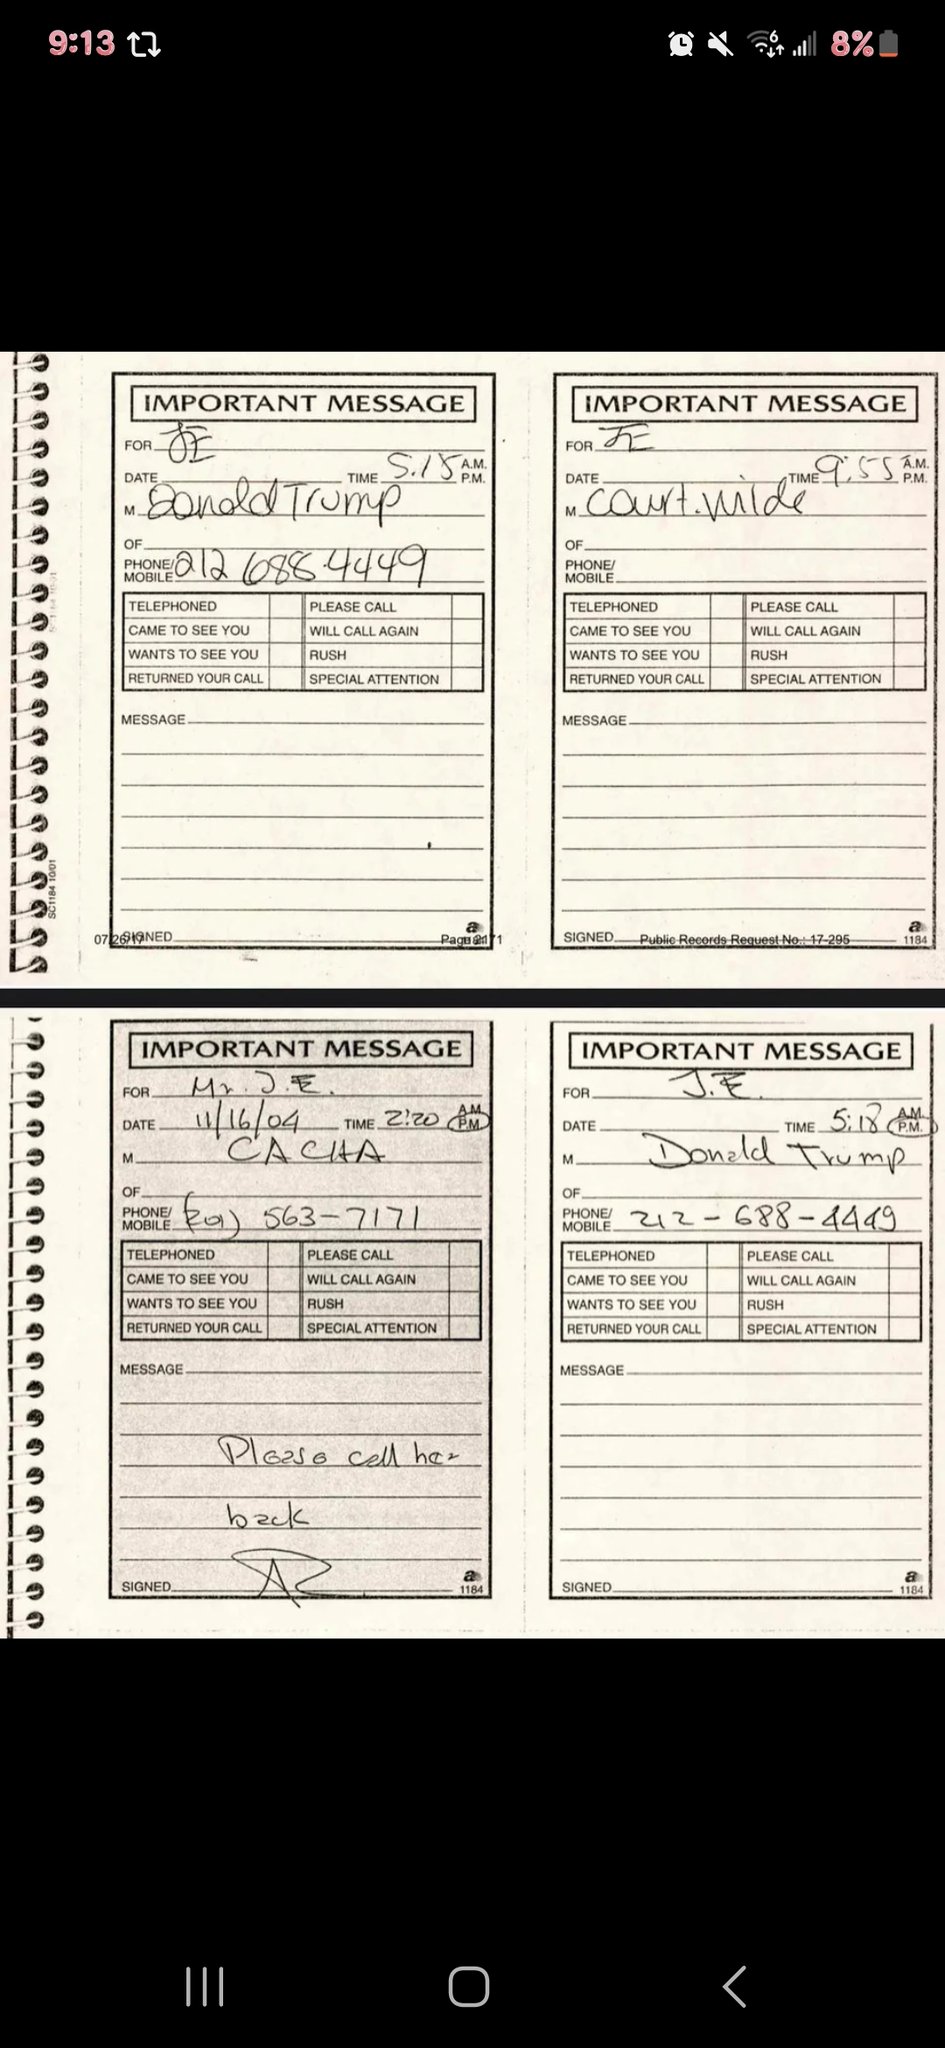 9:13
6
8%
IMPORTANT MESSAGE
FOR JE
DATE TIME 5:15 A.M. P.M.
M Donald Trump
OF
PHONE/MOBILE 212 688-4449
TELEPHONED PLEASE CALL
CAME TO SEE YOU WILL CALL AGAIN
WANTS TO SEE YOU RUSH
RETURNED YOUR CALL SPECIAL ATTENTION
MESSAGE
SIGNED
a
07/26/17
SC1184 10/01
IMPORTANT MESSAGE
FOR JE
DATE TIME 9:55 A.M. P.M.
M Court. Wilde
OF
PHONE/MOBILE
TELEPHONED PLEASE CALL
CAME TO SEE YOU WILL CALL AGAIN
WANTS TO SEE YOU RUSH
RETURNED YOUR CALL SPECIAL ATTENTION
MESSAGE
SIGNED
Public Records Request No.: 17-295
a
1184
IMPORTANT MESSAGE
FOR Mr. J.E.
DATE 11/16/04 TIME 2:20 A.M. P.M.
M CACHA
OF
PHONE/MOBILE (201) 563-7171
TELEPHONED PLEASE CALL
CAME TO SEE YOU WILL CALL AGAIN
WANTS TO SEE YOU RUSH
RETURNED YOUR CALL SPECIAL ATTENTION
MESSAGE
Please call her
back
SIGNED
a
1184
IMPORTANT MESSAGE
FOR J.E.
DATE TIME 5:18 A.M. P.M.
M Donald Trump
OF
PHONE/MOBILE 212-688-4449
TELEPHONED PLEASE CALL
CAME TO SEE YOU WILL CALL AGAIN
WANTS TO SEE YOU RUSH
RETURNED YOUR CALL SPECIAL ATTENTION
MESSAGE
SIGNED
a
1184